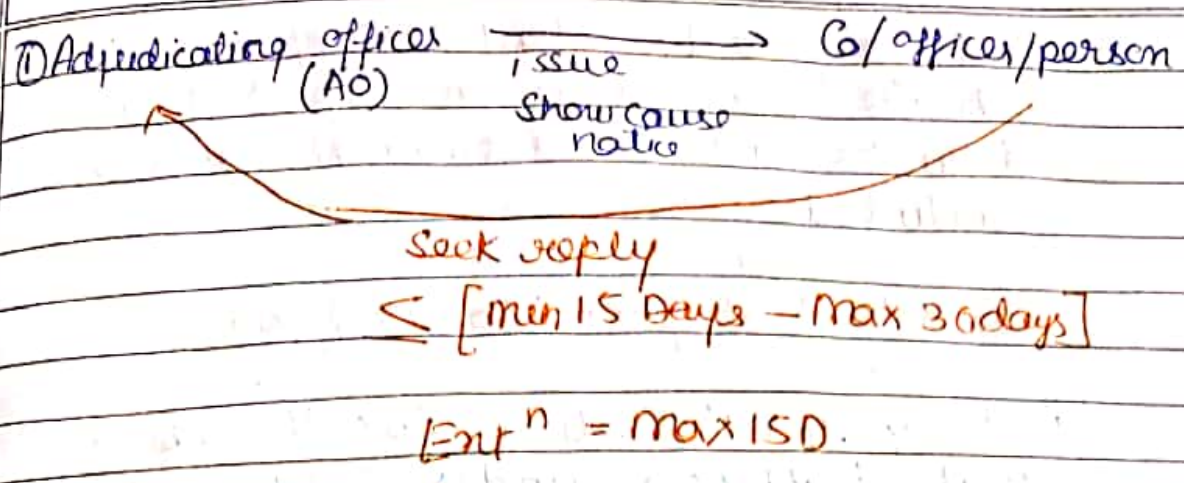 ① Adjudicating officer → Co/officer/person
(AO) issue
Show cause
notice
Seek reply
≤ [min 15 Days - Max 30days]
Extⁿ = Max 15D.